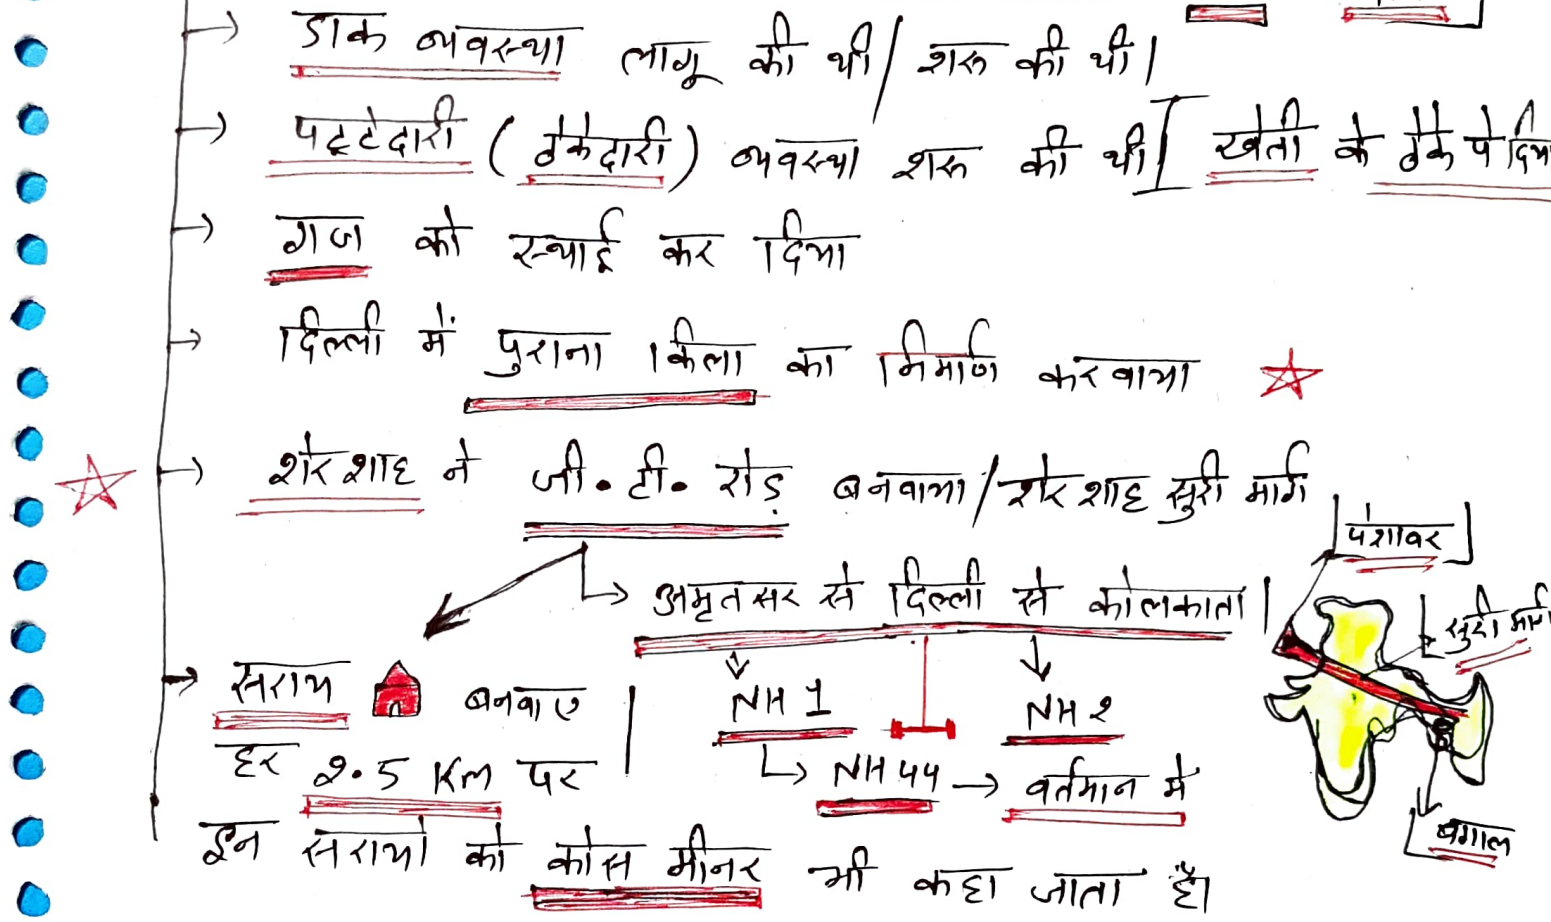 डाक व्यवस्था लागू की थी/ शरू की थी।
पट्टेदारी (ठेकेदारी) व्यवस्था शरू की थी] खेती के ठेके पे दिया
गज को स्थाई कर दिया
दिल्ली में पुराना किला का निर्माण करवाया
शेरशाह ने जी॰ टी॰ रोड़ बनवाया/शेरशाह सुरी मार्ग
पेशावर
अमृतसर से दिल्ली से कोलकाता
सुरी मार्ग
सराय बनवाए
NH 1 NH 2
हर 2.5 Km पर
NH 44 → वर्तमान में
इन सरायो को कोस मीनर भी कहा जाता है।
बंगाल